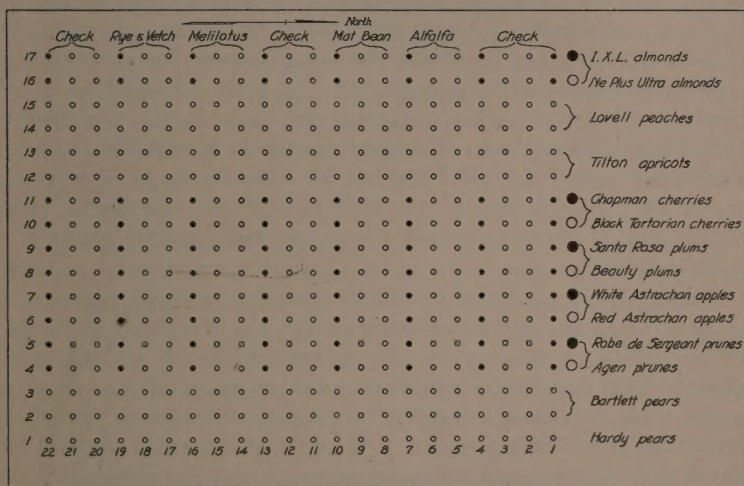 North
Check Rye & Vetch Melilotus Check Mat Bean Alfalfa Check
17 I.X.L. almonds
16 Ne Plus Ultra almonds
15
Lovell peaches
14
13
Tilton apricots
12
11 Chapman cherries
10 Black Tartarian cherries
9 Santa Rosa plums
8 Beauty plums
7 White Astrachan apples
6 Red Astrachan apples
5 Robe de Sergeant prunes
4 Agen prunes
3
Bartlett pears
2
1 Hardy pears
22 21 20 19 18 17 16 15 14 13 12 11 10 9 8 7 6 5 4 3 2 1